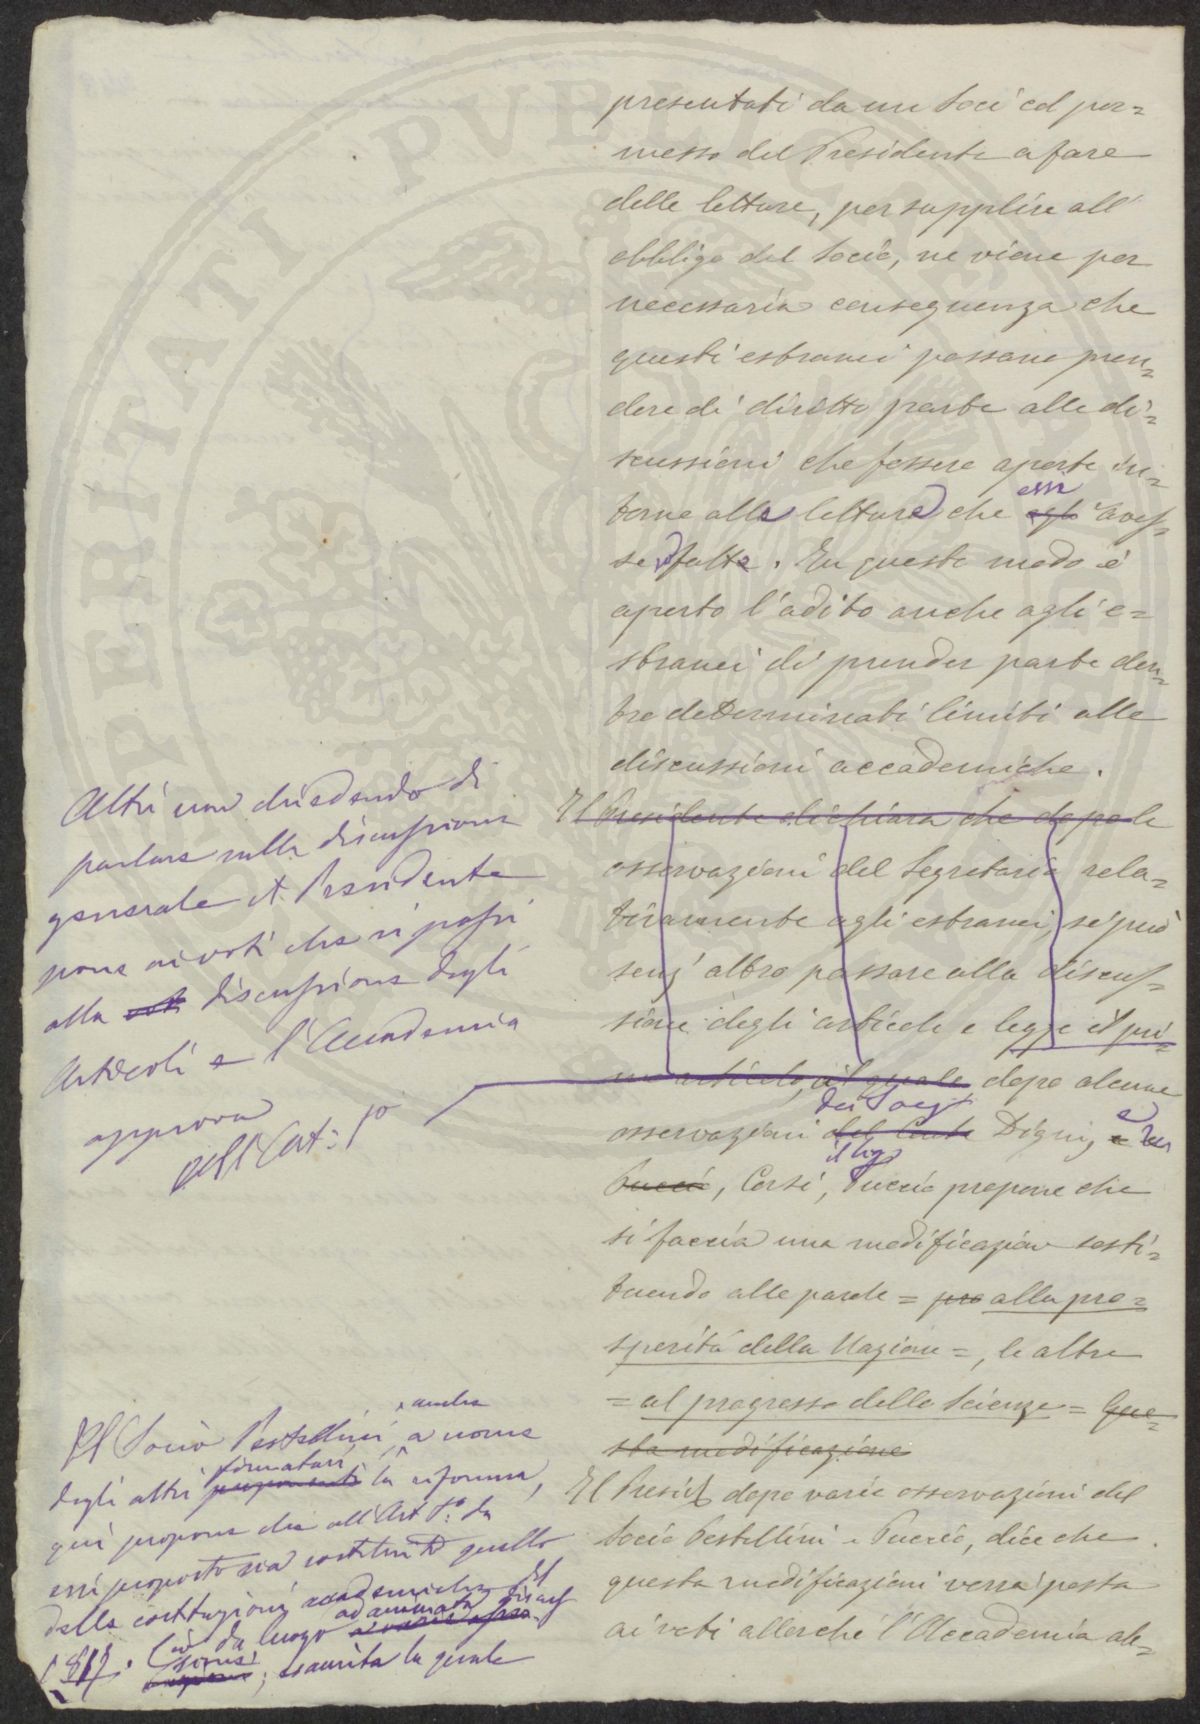 presentati da un Soci col per=
messo del Presidente a fare
delle letture, per supplire all'
obbligo del Socio, ne viene per
necessaria conseguenza che
questi estranei possano pren=
dere di diritto parte alle di=
scussioni che fossero aperte in=
torno alle letture che essi aves=
se fatte. In questo modo è
aperto l'adito anche agli e=
stranei di prender parte den=
tro determinati limiti alle
discussioni accademiche.
Il Presidente dichiara che dopo le
osservazioni del Segretario rela=
tivamente agli estranei, si può
senz' altro passare alla discus=
sione degli articoli e legge il pri=
mo articolo, il quale dopo alcune
dei Socj
osservazioni del Conte Digny, e
il Sig
Puccio, Corsi, Puccio propone che
si faccia una modificazione sosti=
tuendo alle parole = pro alla pro=
sperità della Nazione =, le altre
= al progresso delle Scienze = Que=
sta modificazione
Il Presid dopo varie osservazioni del
Socio Pestellini e Puccio, dice che
questa modificazioni verrà posta
ai voti allorchè l'Accademia ab=
Altri non chiedendo di
parlare sulla discussione
generale il Presidente
pone ai voti che si passi
alla discussione degli
Articoli e l'Accademia
approva
Sull'Art: 1º
Il Socio Pestellini, anche a nome
degli altri firmatari proponenti la riforma,
qui propone che all'Art 1º. da
essi proposto sia sostituito quello
delle costituzioni accademiche del
1817. Ciò dà luogo ad animata discus
sione; esaurita la quale
PERITATI PVBLICAE